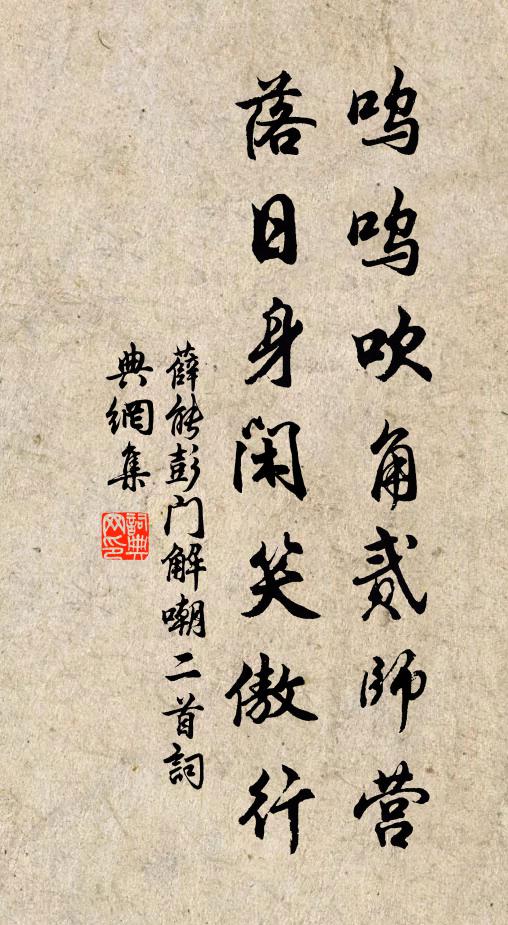 呜呜吹角贰师营
落日身闲笑傲行
薛能彭门解嘲二首詞
典網集
詞典
网印